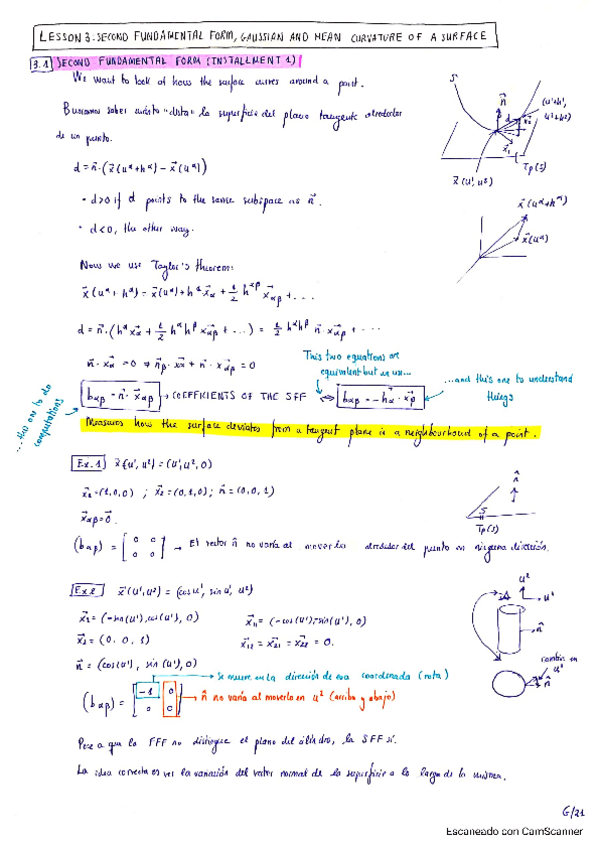 LESSON 3. SECOND FUNDAMENTAL FORM, GAUSSIAN AND MEAN CURVATURE OF A SURFACE
3.1 SECOND FUNDAMENTAL FORM (INSTALLMENT 1)
We want to look at how the surface curves around a point.
Buscamos saber cuánto "dista" la superficie del plano tangente alrededor
de un punto.
d = n⃗·(x⃗(uᵅ+hᵅ) − x⃗(uᵅ))
· d>0 if d points to the same subspace as n⃗.
· d<0, the other way.
S
n⃗
d
x⃗₁
x⃗₂
(u¹+h¹,
u²+h²)
Tp(S)
x⃗(u¹,u²)
x⃗(uᵅ+hᵅ)
x⃗(uᵅ)
Now we use Taylor's theorem:
x⃗(uᵅ+hᵅ) = x⃗(uᵅ) + hᵅ x⃗α + 1/2 hᵅᵝ x⃗αβ + ...
d = n⃗·(hᵅ x⃗α + 1/2 hᵅhᵝ x⃗αβ + ...) = 1/2 hᵅhᵝ n⃗·x⃗αβ + ...
n⃗·x⃗α = 0 ⇒ n⃗β·x⃗α + n⃗·x⃗αβ = 0
This two equations are
equivalent but we use...
bαβ = n⃗·x⃗αβ → COEFFICIENTS OF THE SFF ⇔ bαβ = −n⃗α·x⃗β
...and this one to understand
things
...this one to do
computations
Measures how the surface deviates from a tangent plane in a neighbourhood of a point.
Ex.1 x⃗(u¹,u²) = (u¹,u²,0)
x⃗₁ = (1,0,0) ; x⃗₂ = (0,1,0) ; n⃗ = (0,0,1)
x⃗αβ = 0⃗.
(bαβ) = [0 0
0 0] → El vector n⃗ no varía al moverlo alrededor del punto en ninguna dirección.
n⃗
S
Tp(S)
Ex.2 x⃗(u¹,u²) = (cos u¹, sin u¹, u²)
x⃗₁ = (−sin(u¹), cos(u¹), 0) x⃗₁₁ = (−cos(u¹), −sin(u¹), 0)
x⃗₂ = (0, 0, 1) x⃗₁₂ = x⃗₂₁ = x⃗₂₂ = 0.
n⃗ = (cos(u¹), sin(u¹), 0)
→ se mueve en la dirección de esa coordenada (rota)
(bαβ) = [−1 0
0 0] → n⃗ no varía al moverlo en u² (arriba y abajo)
u²
u¹
n⃗
cambia en
u¹
n⃗
Pese a que la FFF no distingue el plano del cilindro, la SFF sí.
La idea correcta es ver la variación del vector normal de la superficie a lo largo de la misma.
6/21
Escaneado con CamScanner